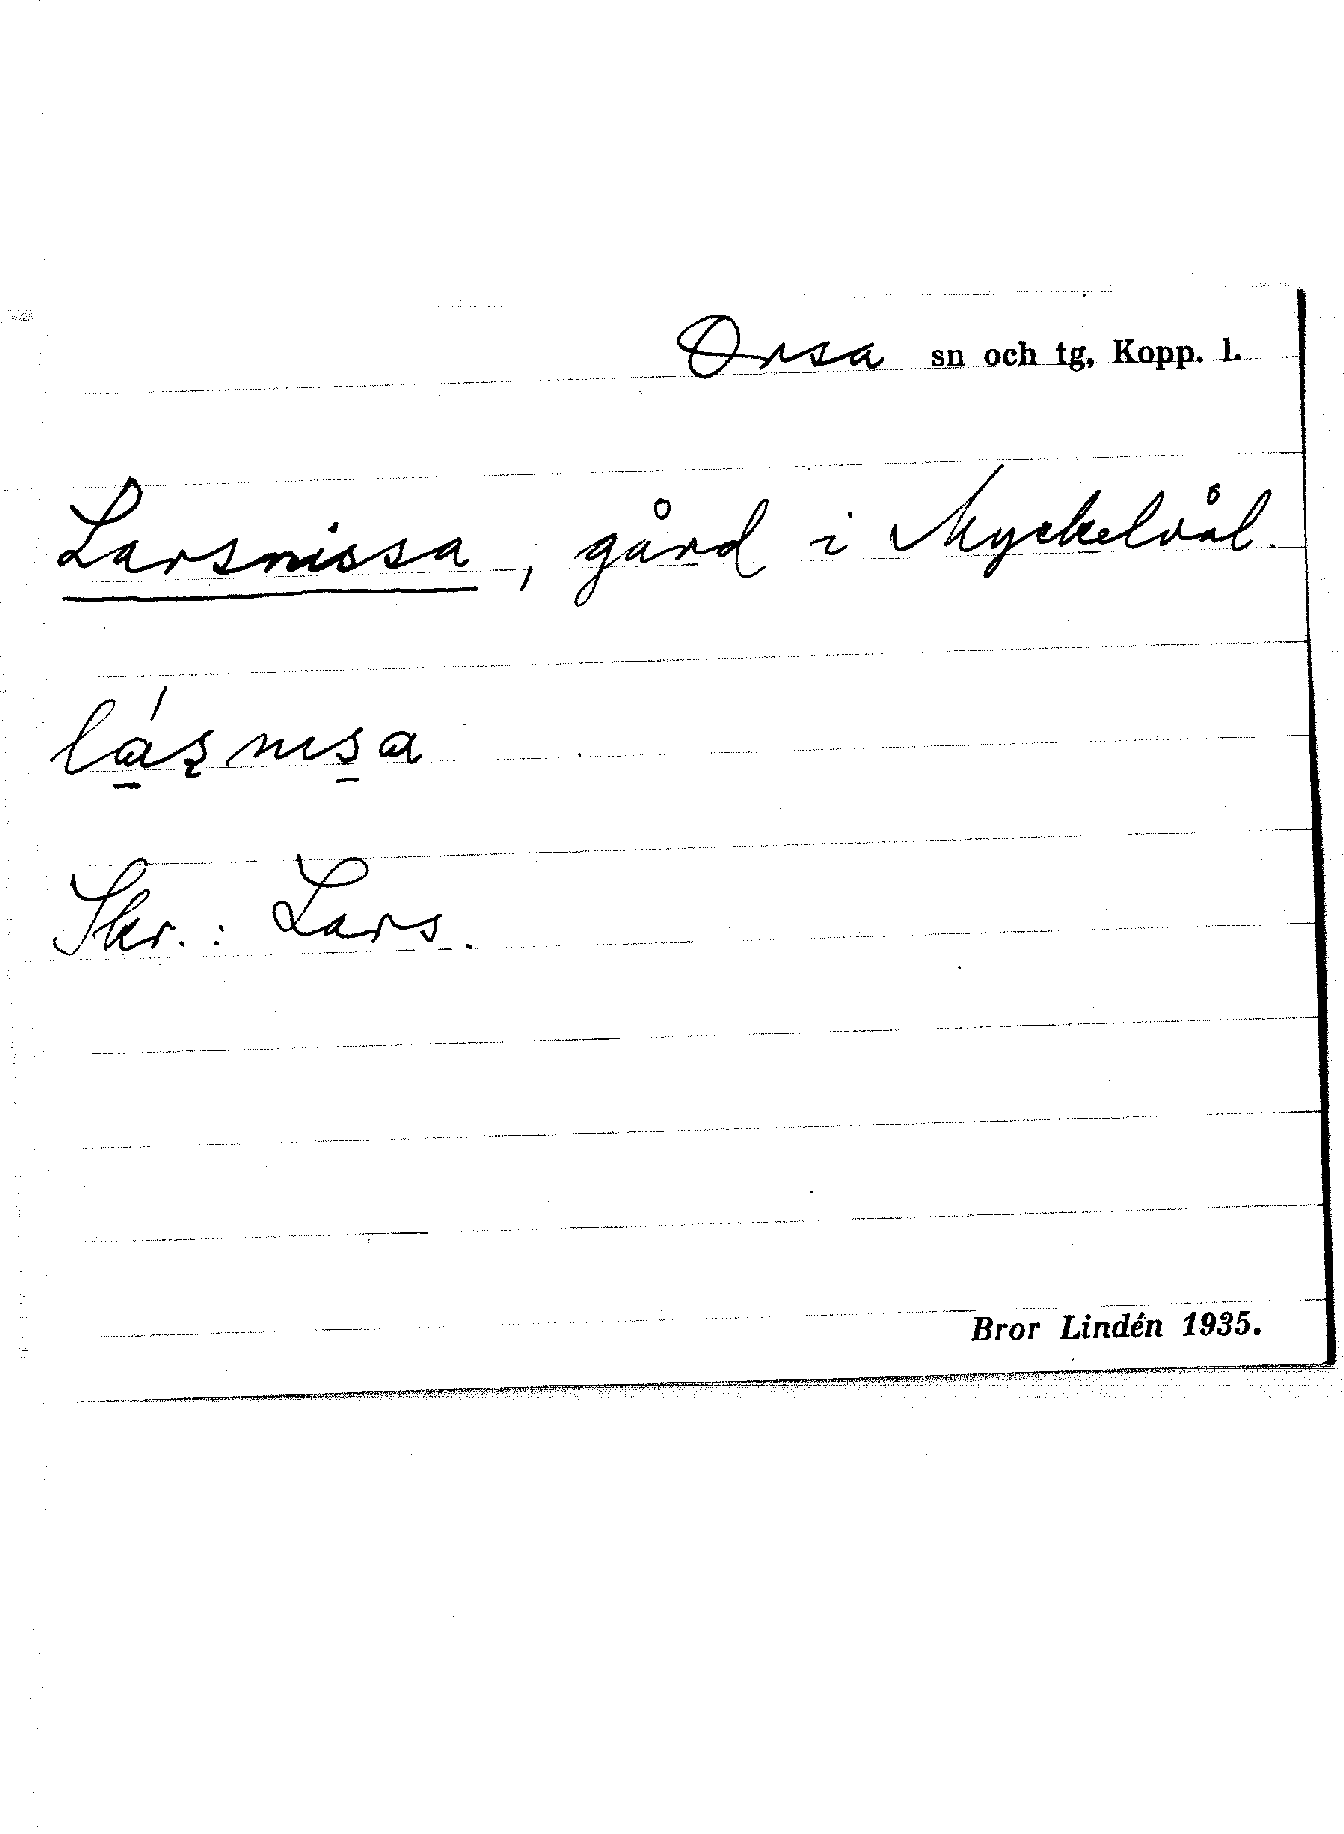 Orsa sn och tg, Kopp. l.
Larsnissa, gård i Myckelvål.
lásnisa
Skr.: Lars.
Bror Lindén 1935.